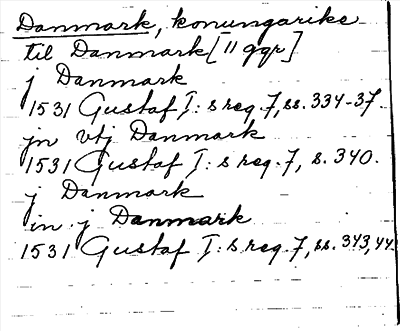 Danmark, konungarike
til Danmark [11 ggr]
j Danmark
1531 Gustaf I: s reg. 7, ss. 334-37.
jn vtj Danmark
1531 Gustaf I: s reg. 7, s. 340.
j Danmark
in j Danmark
1531 Gustaf I: s reg. 7, ss. 343, 44.